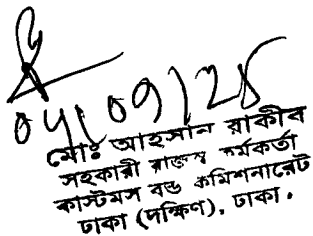 04/09/25
মোঃ আহসান রাকীব
সহকারী রাজস্ব কর্মকর্তা
কাস্টমস বন্ড কমিশনারেট
ঢাকা (দক্ষিণ), ঢাকা।